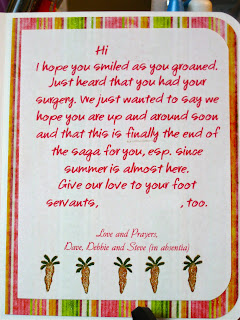 Hi
I hope you smiled as you groaned.
Just heard that you had your
surgery. We just wanted to say we
hope you are up and around soon
and that this is finally the end of
the saga for you, esp. since
summer is almost here.
Give our love to your foot
servants, , too.
Love and Prayers,
Dave, Debbie and Steve (in absentia)